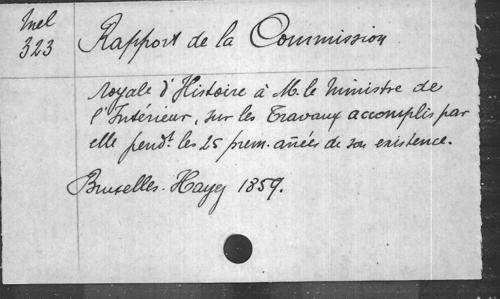 Mel
323
Rapport de la Commission
royale d'Histoire à M. le Ministre de
l'Intérieur, sur les Travaux accomplis par
elle pendt. les 25 prem. añées de son existence.
Bruxelles. Hayez 1859.